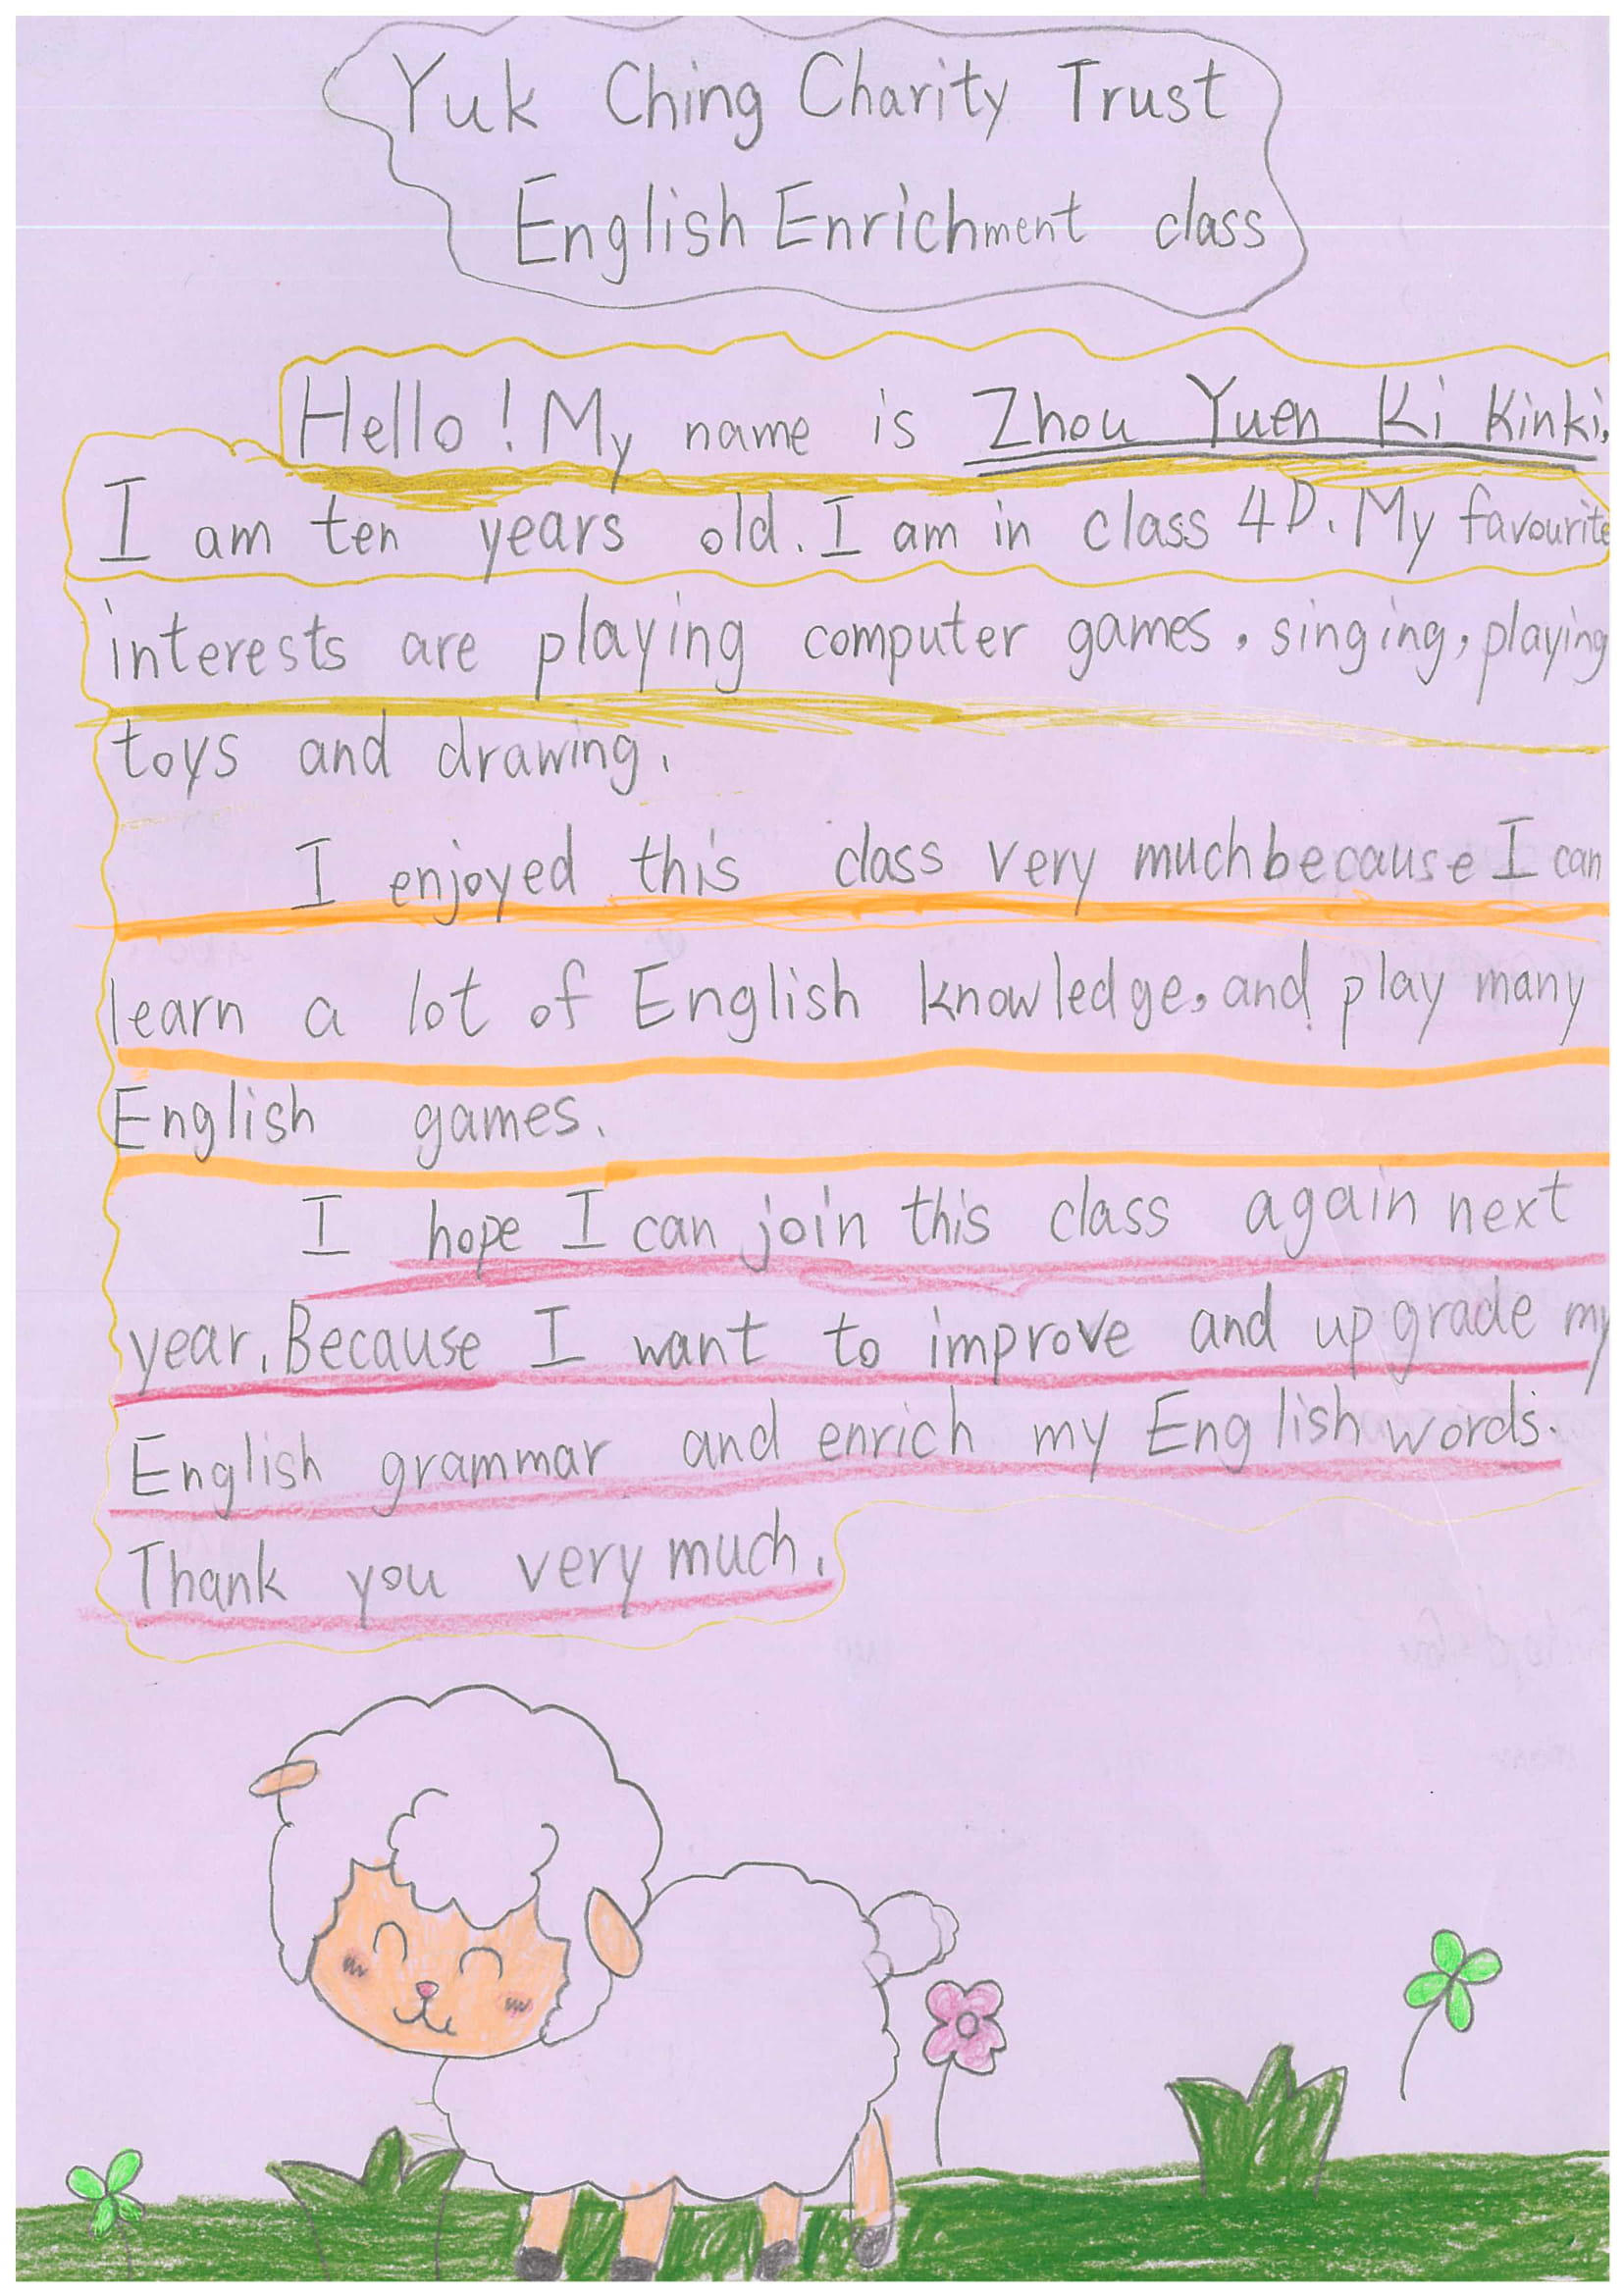 Yuk Ching Charity Trust
English Enrichment class
Hello! My name is Zhou Yuen Ki Kinki.
I am ten years old. I am in class 4D. My favourite
interests are playing computer games, singing, playing
toys and drawing.
I enjoyed this class very much because I can
learn a lot of English knowledge, and play many
English games.
I hope I can join this class again next
year. Because I want to improve and upgrade my
English grammar and enrich my English words.
Thank you very much.